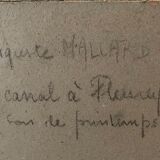 uguste MALLARD
canal à Fleurey
soir de printemps